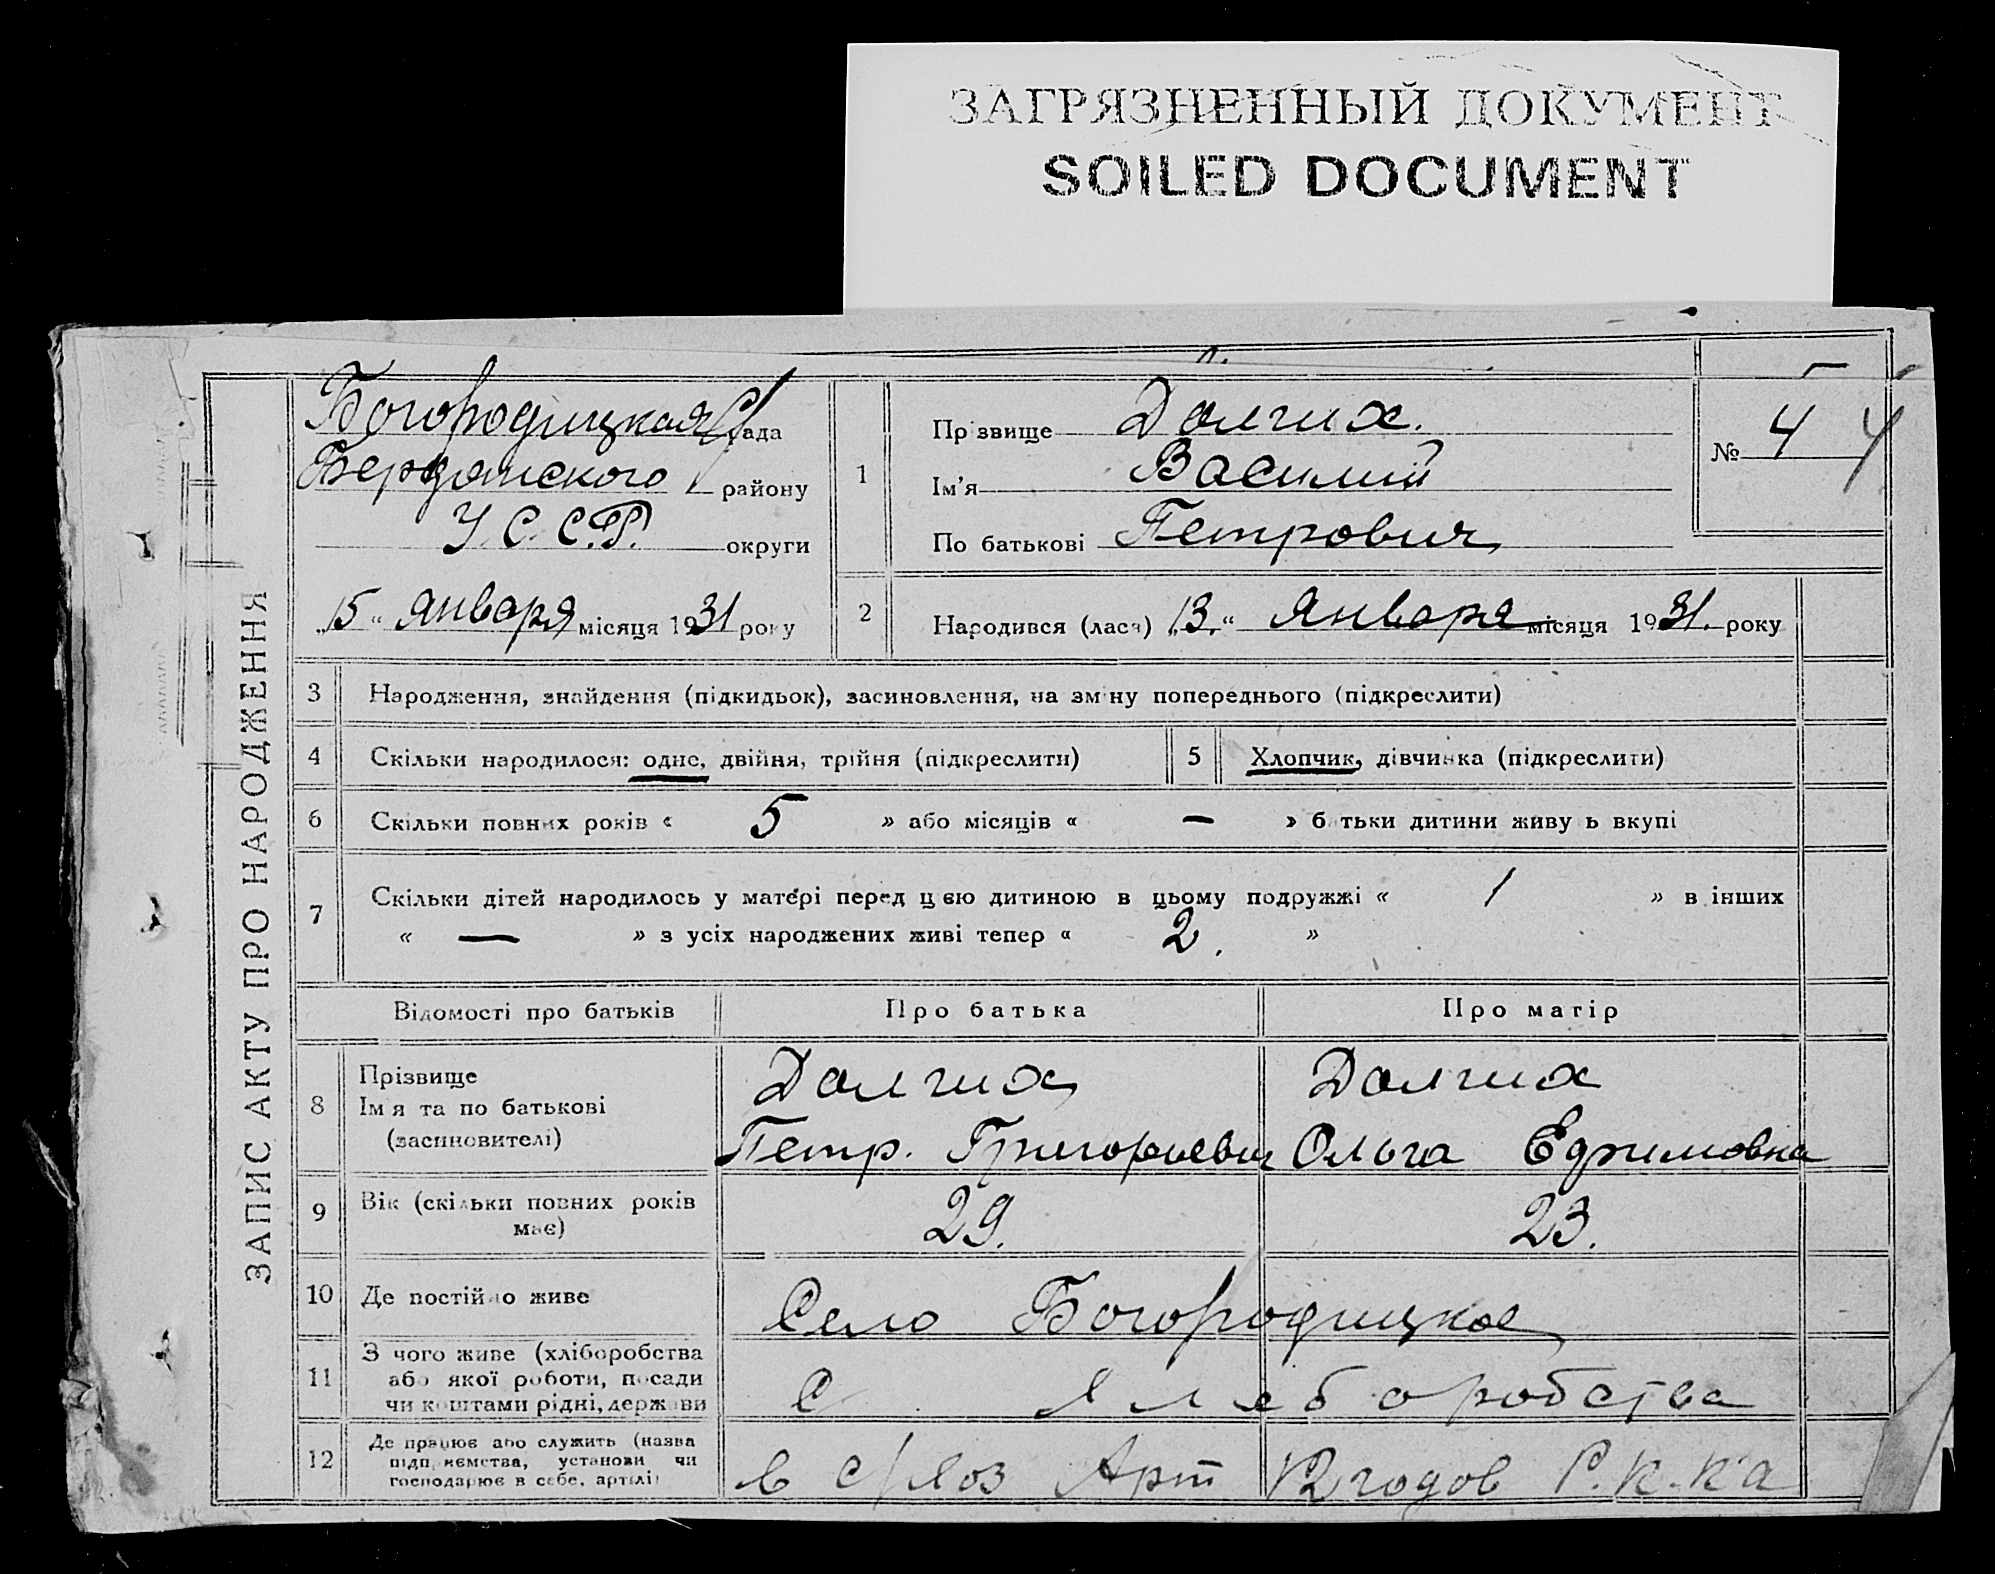 ЗАГРЯЗНЕННЫЙ ДОКУМЕНТ
SOILED DOCUMENT
ЗАПИС АКТУ ПРО НАРОДЖЕННЯ
Богородицкая с/рада
Бердянского району
У.С.С.Р. округи
„15“ января місяця 1931 року
1
Прізвище Долгих.
Ім'я Василий
По батькові Петрович
№ 4 4
2 Народився (лася) „13.“ Января місяця 1931. року
3 Народження, знайдення (підкидьок), засиновлення, на зміну попереднього (підкреслити)
4 Скільки народилося: одне, двійня, трійня (підкреслити) 5 Хлопчик, дівчинка (підкреслити)
6 Скільки повних років « 5 » або місяців « — » батьки дитини живуть вкупі
7 Скільки дітей народилось у матері перед цією дитиною в цьому подружжі « 1 » в інших
« — » з усіх народжених живі тепер « 2. »
Відомості про батьків Про батька Про матір
8 Прізвище Долгих Долгих
Ім'я та по батькові
(засиновителі) Петр. Григорьевич Ольга Ефимовна
9 Вік (скільки повних років
має) 29. 23.
10 Де постійно живе Село Богородицкое
11 З чого живе (хліборобства
або якої роботи, посади
чи коштами рідні, держави С Хлеборобства
12 Де працює або служить (назва
підприємства, установи чи
господарює в себе, артілі) в с/хоз Арт 12 годов Р.К.К.А